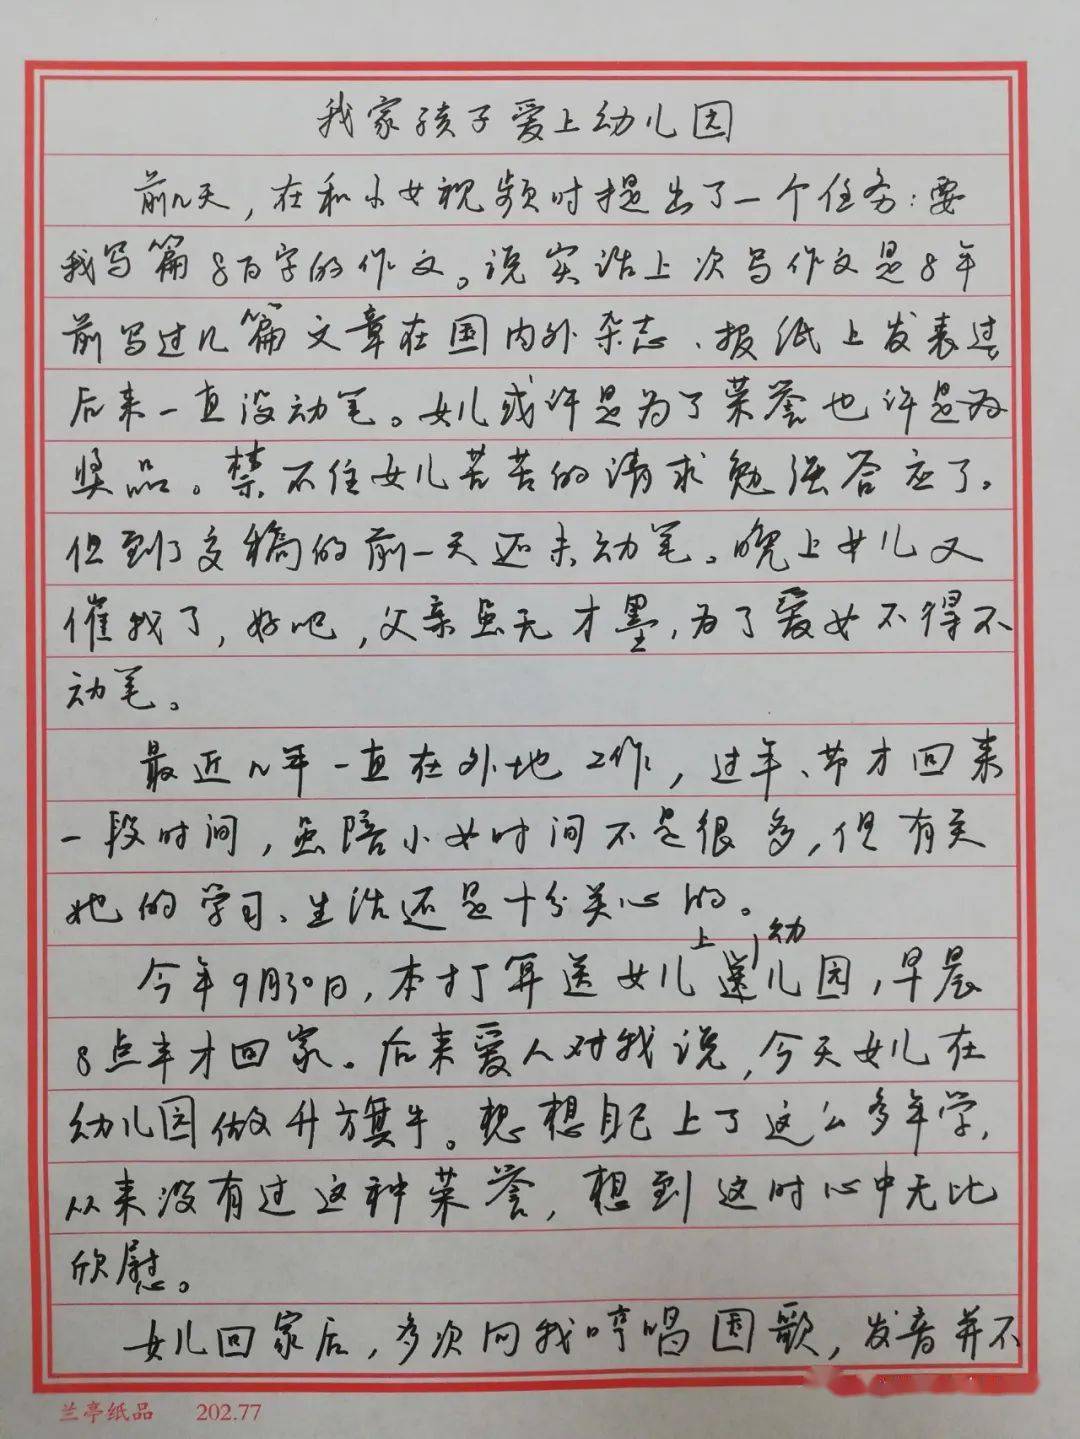 我家孩子爱上幼儿园
前几天，在和小女视频时提出了一个任务：要
我写篇8百字的作文。说实话上次写作文是8年
前写过几篇文章在国内外杂志、报纸上发表过
后来一直没动笔。女儿或许是为了荣誉也许是为
奖品。禁不住女儿苦苦的请求勉强答应了。
但到了交稿的前一天还未动笔。晚上女儿又
催我了，好吧，父亲虽无才墨，为了爱女不得不
动笔。
最近几年一直在外地工作，过年、节才回来
一段时间，虽陪小女时间不是很多，但有关
她的学习、生活还是十分关心的。
今年9月30日，本打算送女儿上幼儿园，早晨
8点半才回家。后来爱人对我说，今天女儿在
幼儿园做升旗手。想想自己上了这么多年学，
从来没有过这种荣誉，想到这时心中无比
欣慰。
女儿回家后，多次向我哼唱国歌，发音并不
兰亭纸品 202.77